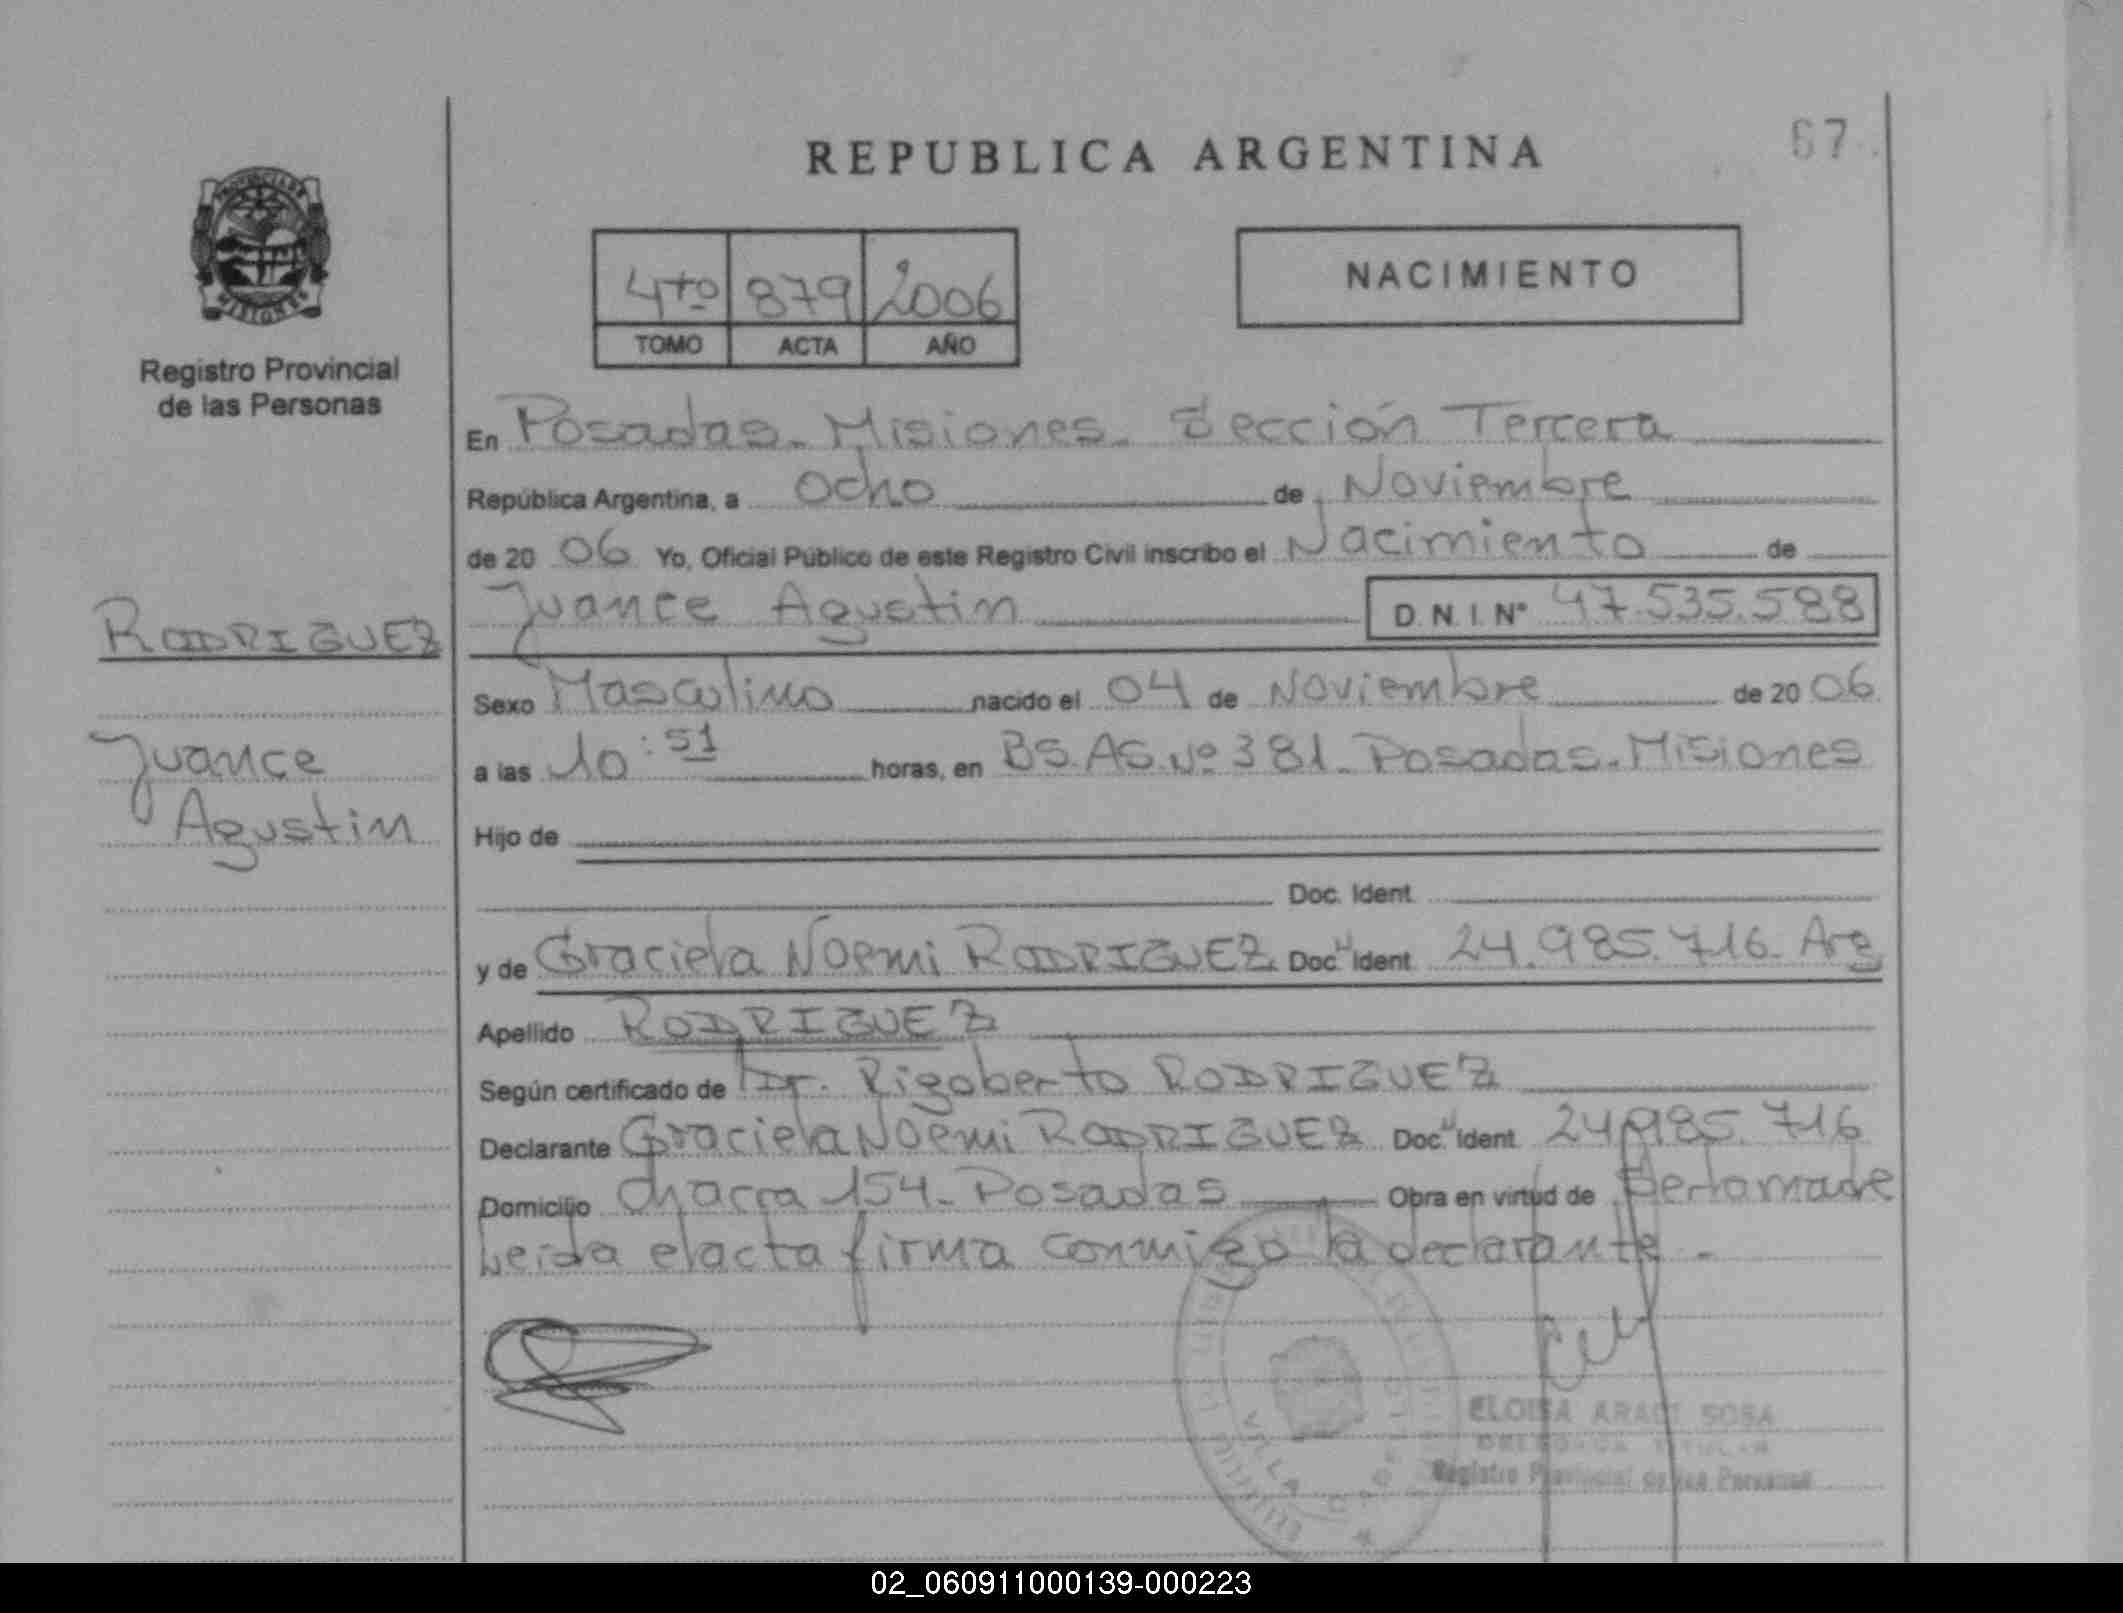 REPUBLICA ARGENTINA
67
PROVINCIA DE
MISIONES
Registro Provincial
de las Personas
4to 879 2006
TOMO ACTA AÑO
NACIMIENTO
En Posadas - Misiones - Sección Tercera
República Argentina, a Ocho de Noviembre
de 20 06 Yo, Oficial Público de este Registro Civil inscribo el Nacimiento de
Juance Agustin D.N.I. N° 47.535.588
RODRIGUEZ
Sexo Masculino nacido el 04 de Noviembre de 20 06
Juance
Agustin
a las 10:51 horas, en BS.AS.Nº 381 - Posadas - Misiones
Hijo de
Doc. Ident.
y de Graciela Noemi RODRIGUEZ Doc. Ident. 24.985.716 - Arg
Apellido RODRIGUEZ
Según certificado de Dr. Rigoberto RODRIGUEZ
Declarante Graciela Noemi RODRIGUEZ Doc. Ident. 24.985.716
Domicilio Chacra 154 - Posadas Obra en virtud de Ser la madre
Leida el acta firma conmigo la declarante -
VILLA CABELLO
ELOISA ARACI SOSA
DELEGADA TITULAR
Registro Provincial de las Personas
02_060911000139-000223